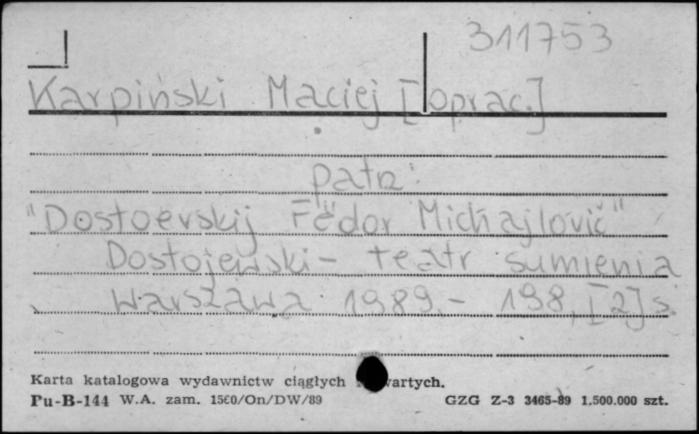 311753
Karpiński Maciej [oprac.]
patrz:
"Dostoevskij Fëdor Michajlovič"
Dostojewski – teatr sumienia
Warszawa 1989.– 198, [2] s.
Karta katalogowa wydawnictw ciągłych wartych.
Pu-B-144 W.A. zam. 1560/On/DW/89 GZG Z-3 3465-89 1.500.000 szt.